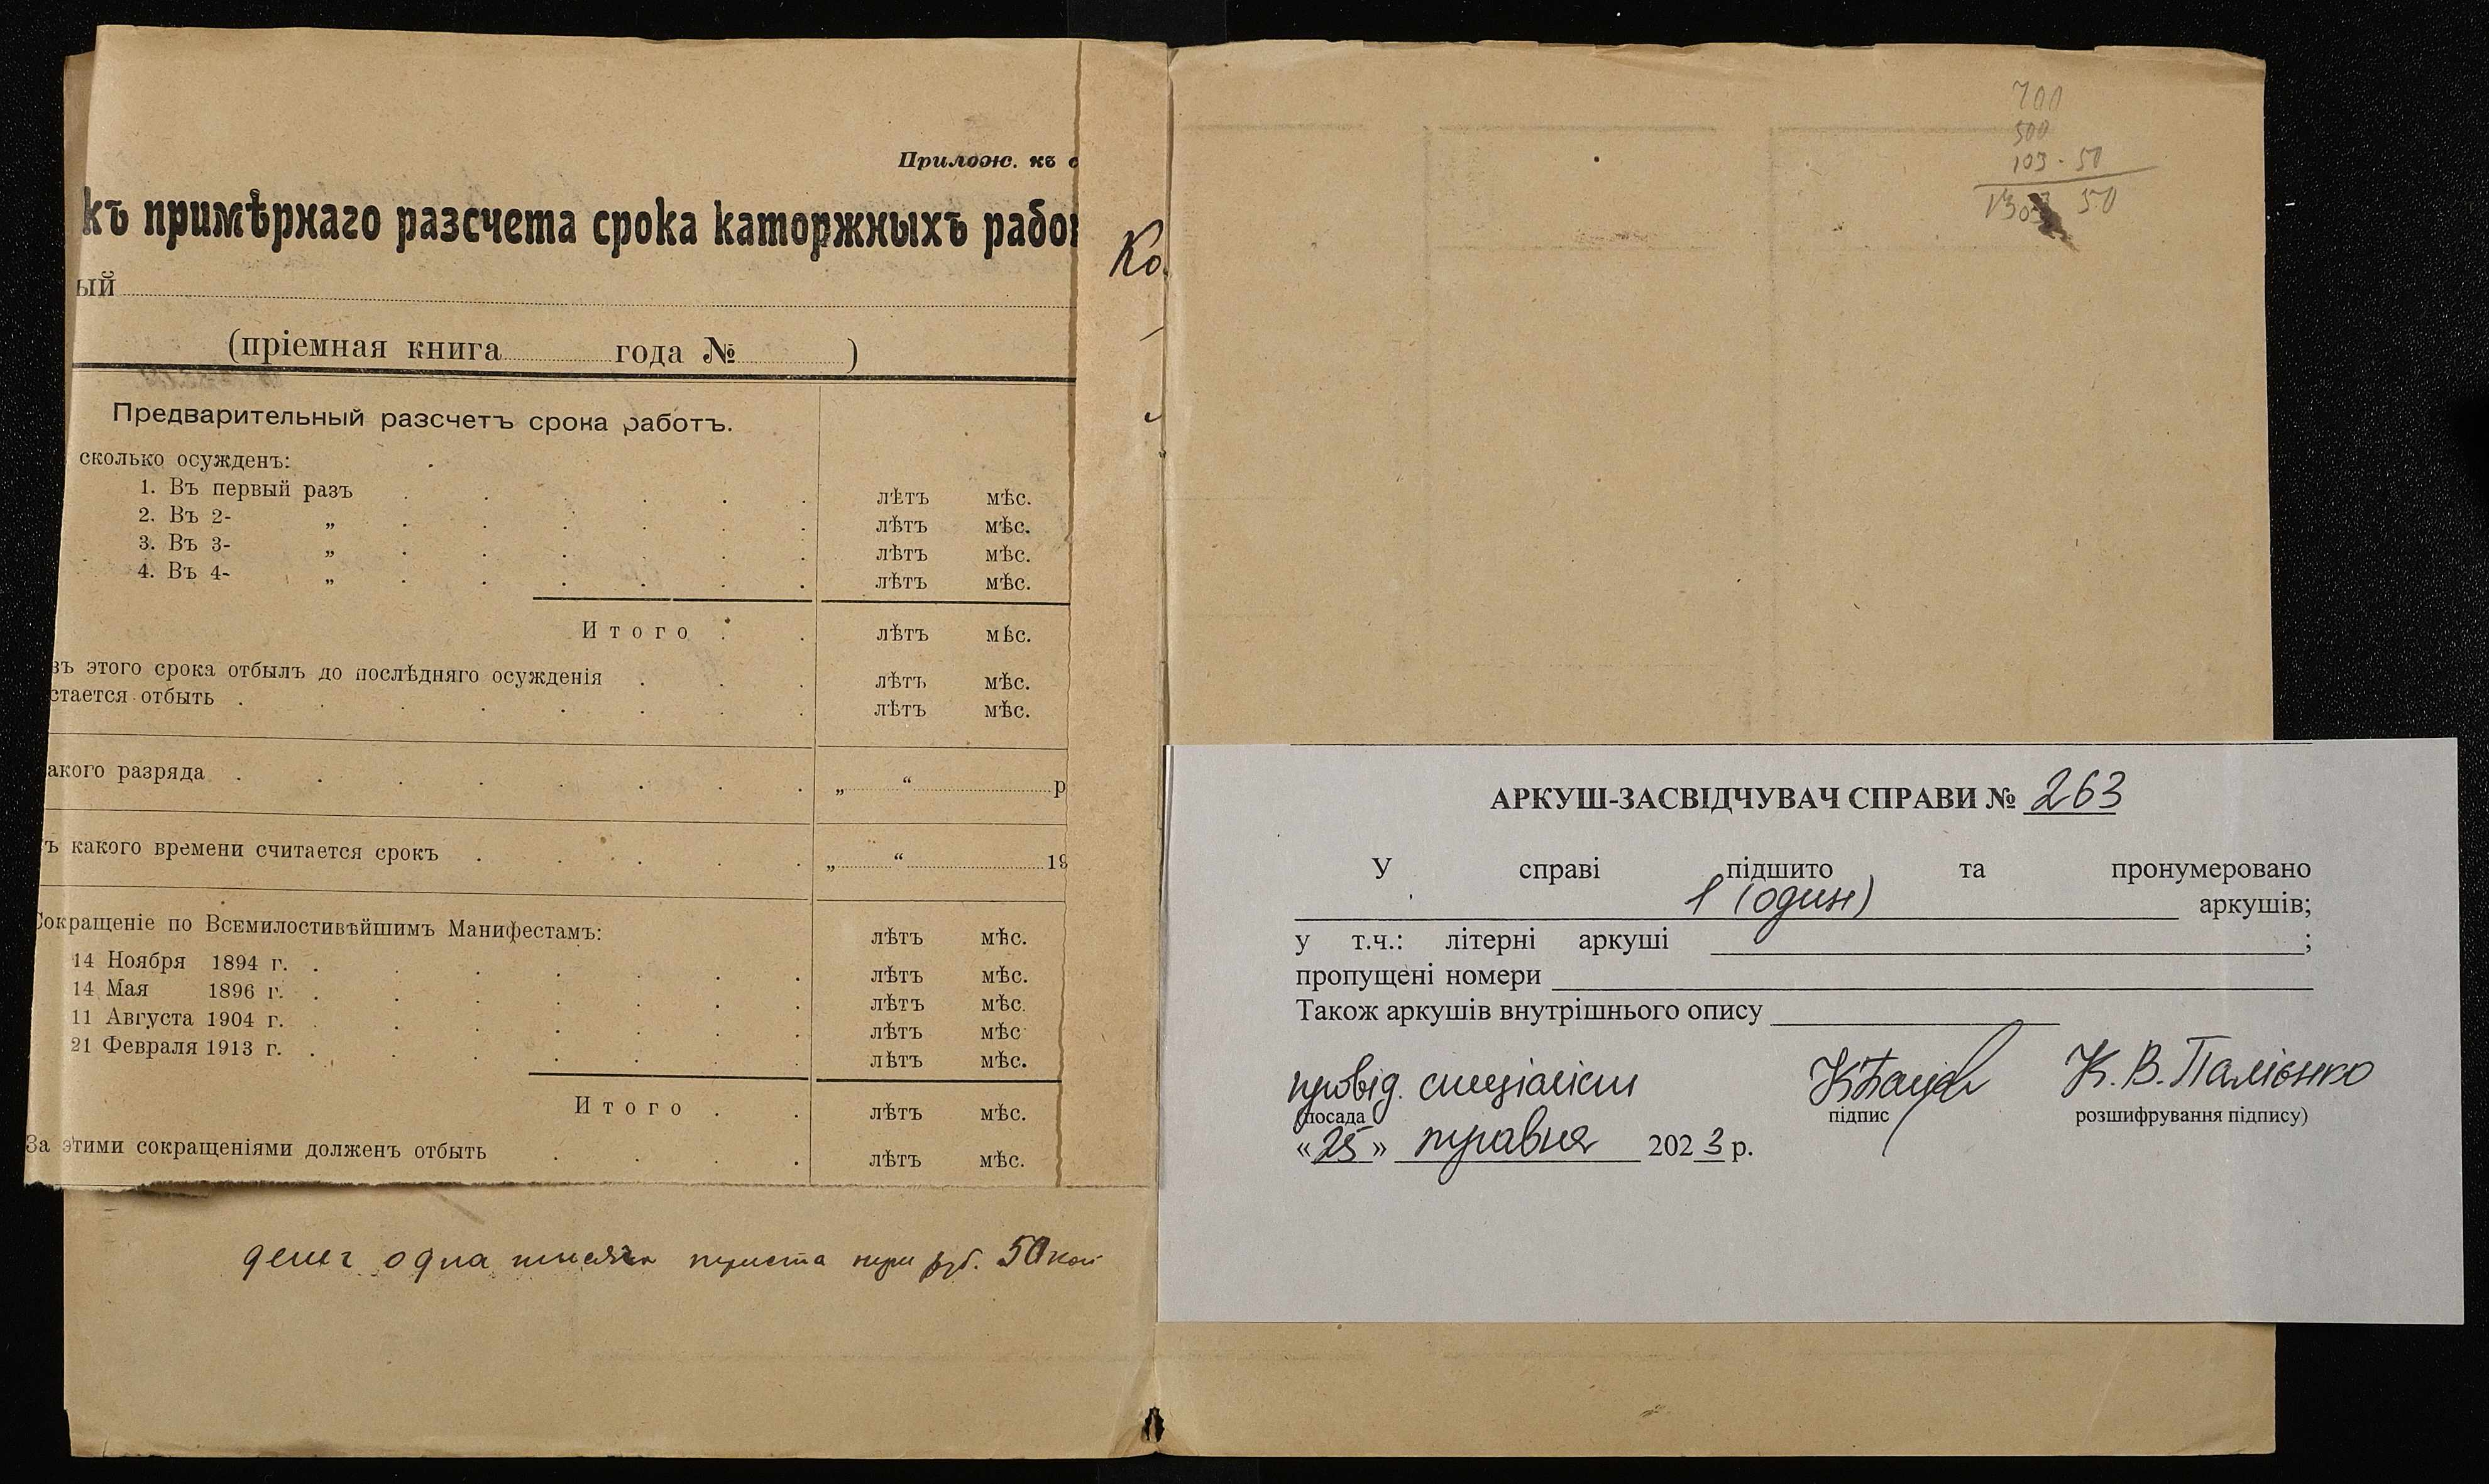 Прилож. къ с
къ примѣрнаго разсчета срока каторжныхъ работ
ый
(пріемная книга года № )
Предварительный разсчетъ срока работъ.
сколько осужденъ:
1. Въ первый разъ лѣтъ мѣс.
2. Въ 2- „ лѣтъ мѣс.
3. Въ 3- „ лѣтъ мѣс.
4. Въ 4- „ лѣтъ мѣс.
Итого лѣтъ мѣс.
зъ этого срока отбылъ до послѣдняго осужденія лѣтъ мѣс.
стается отбыть лѣтъ мѣс.
акого разряда „ “ р
ъ какого времени считается срокъ „ “ 19
Сокращеніе по Всемилостивѣйшимъ Манифестамъ: лѣтъ мѣс.
14 Ноября 1894 г. лѣтъ мѣс.
14 Мая 1896 г. лѣтъ мѣс.
11 Августа 1904 г. лѣтъ мѣс
21 Февраля 1913 г. лѣтъ мѣс.
Итого лѣтъ мѣс.
За этими сокращеніями долженъ отбыть лѣтъ мѣс.
денег одна тысяча триста три руб. 50 коп
Ко
700
500
103 - 50
1303 50
АРКУШ-ЗАСВІДЧУВАЧ СПРАВИ № 263
У справі підшито та пронумеровано
1 (один) аркушів;
у т.ч.: літерні аркуші ;
пропущені номери
Також аркушів внутрішнього опису
провід. спеціаліст К. В. Палієнко
(посада підпис розшифрування підпису)
«25» травня 2023 р.